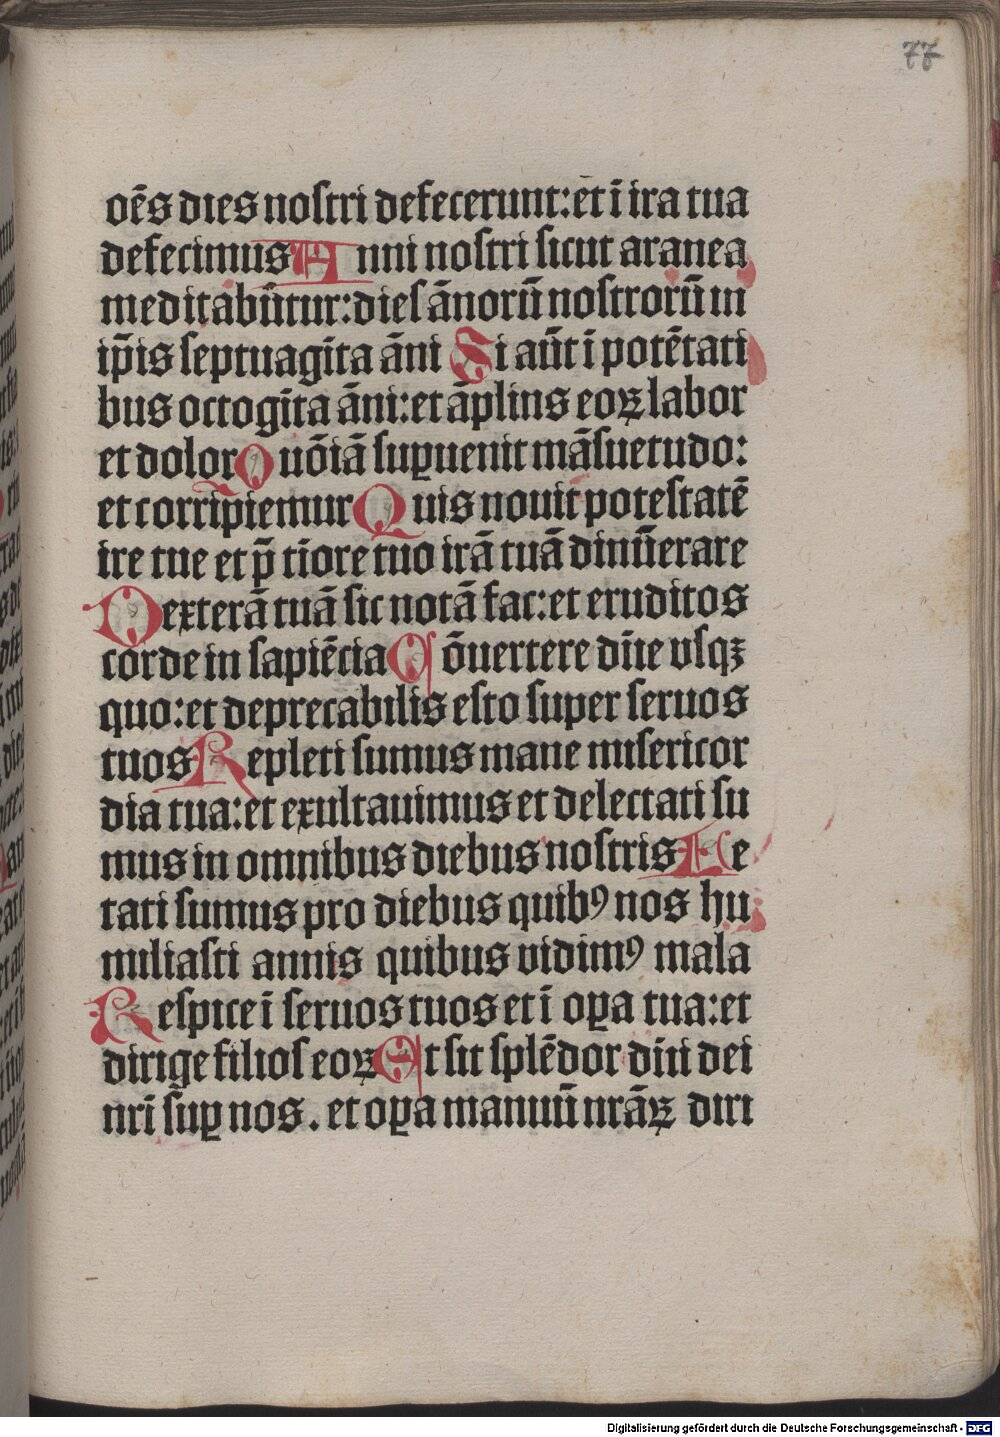 77
oēs dies nostri defecerunt: et ī ira tua
defecimus Anni nostri sicut aranea
meditabūtur: dies ānorū nostrorū in
ip̄is septuagīta āni Si aūt ī potētati
bus octogīta āni: et āplius eoꝝ labor
et dolor Quōiā suꝑuenit māsuetudo:
et corripiemur Quis nouit potestatē
ire tue et p̄ tiōre tuo irā tuā dinūerare
Dexterā tuā sic notā fac: et eruditos
corde in sapiēcia Cōuertere dn̄e vsqꝫ
quo: et deprecabilis esto super seruos
tuos Repleti sumus mane misericor
dia tua: et exultauimus et delectati su
mus in omnibus diebus nostris Le
tati sumus pro diebus quibꝰ nos hu
miliasti annis quibus vidimꝰ mala
Respice ī seruos tuos et ī oꝑa tua: et
dirige filios eoꝝ Et sit splēdor dn̄i dei
nr̄i suꝑ nos . et oꝑa manuū nrāꝝ diri
Digitalisierung gefördert durch die Deutsche Forschungsgemeinschaft - DFG